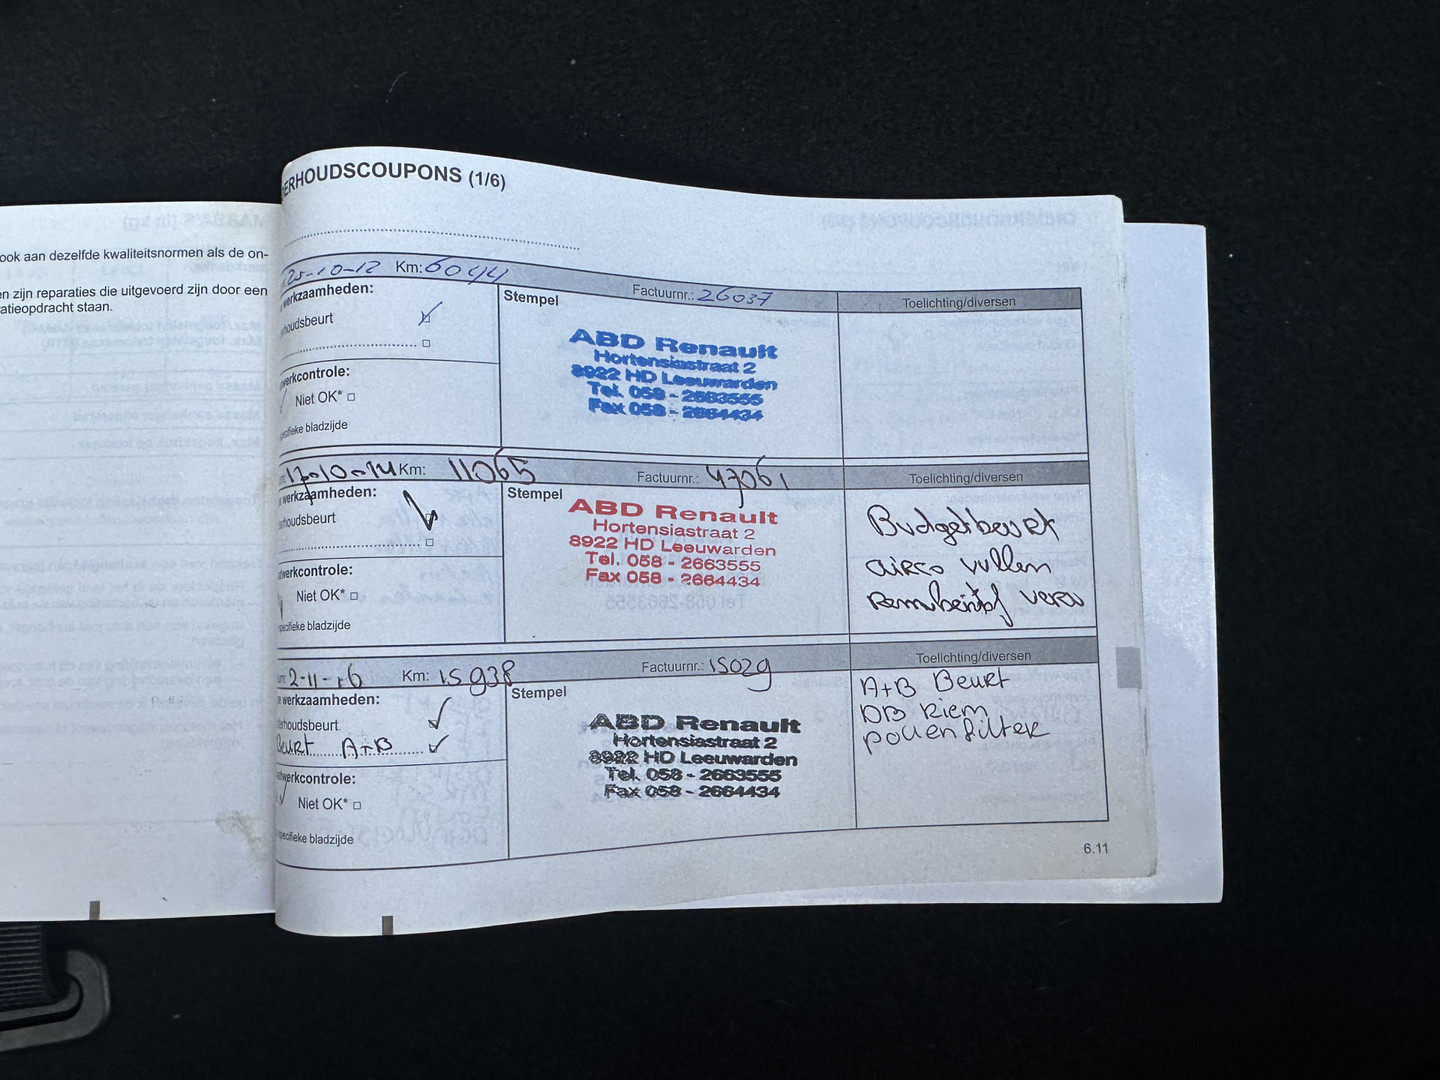 ook aan dezelfde kwaliteitsnormen als de on-
en zijn reparaties die uitgevoerd zijn door een
ratieopdracht staan.
ERHOUDSCOUPONS (1/6)
25-10-12 Km: 6044 Factuurnr.: 26037 Toelichting/diversen
werkzaamheden:
houdsbeurt
werkcontrole:
Niet OK* □
specifieke bladzijde
Stempel
ABD Renault
Hortensiastraat 2
8922 HD Leeuwarden
Tel. 058 - 2663555
Fax 058 - 2664434
17-10-14 Km: 11065 Factuurnr.: 47061 Toelichting/diversen
werkzaamheden:
rhoudsbeurt
twerkcontrole:
Niet OK* □
specifieke bladzijde
Stempel
ABD Renault
Hortensiastraat 2
8922 HD Leeuwarden
Tel. 058 - 2663555
Fax 058 - 2664434
Budgetbeurt
airco vullen
verv
2-11-16 Km: 15938 Factuurnr.: 15029 Toelichting/diversen
werkzaamheden:
erhoudsbeurt
Beurt A+B
werkcontrole:
Niet OK* □
specifieke bladzijde
Stempel
ABD Renault
Hortensiastraat 2
8922 HD Leeuwarden
Tel. 058 - 2663555
Fax 058 - 2664434
A+B Beurt
DB Riem
pollenfilter
6.11